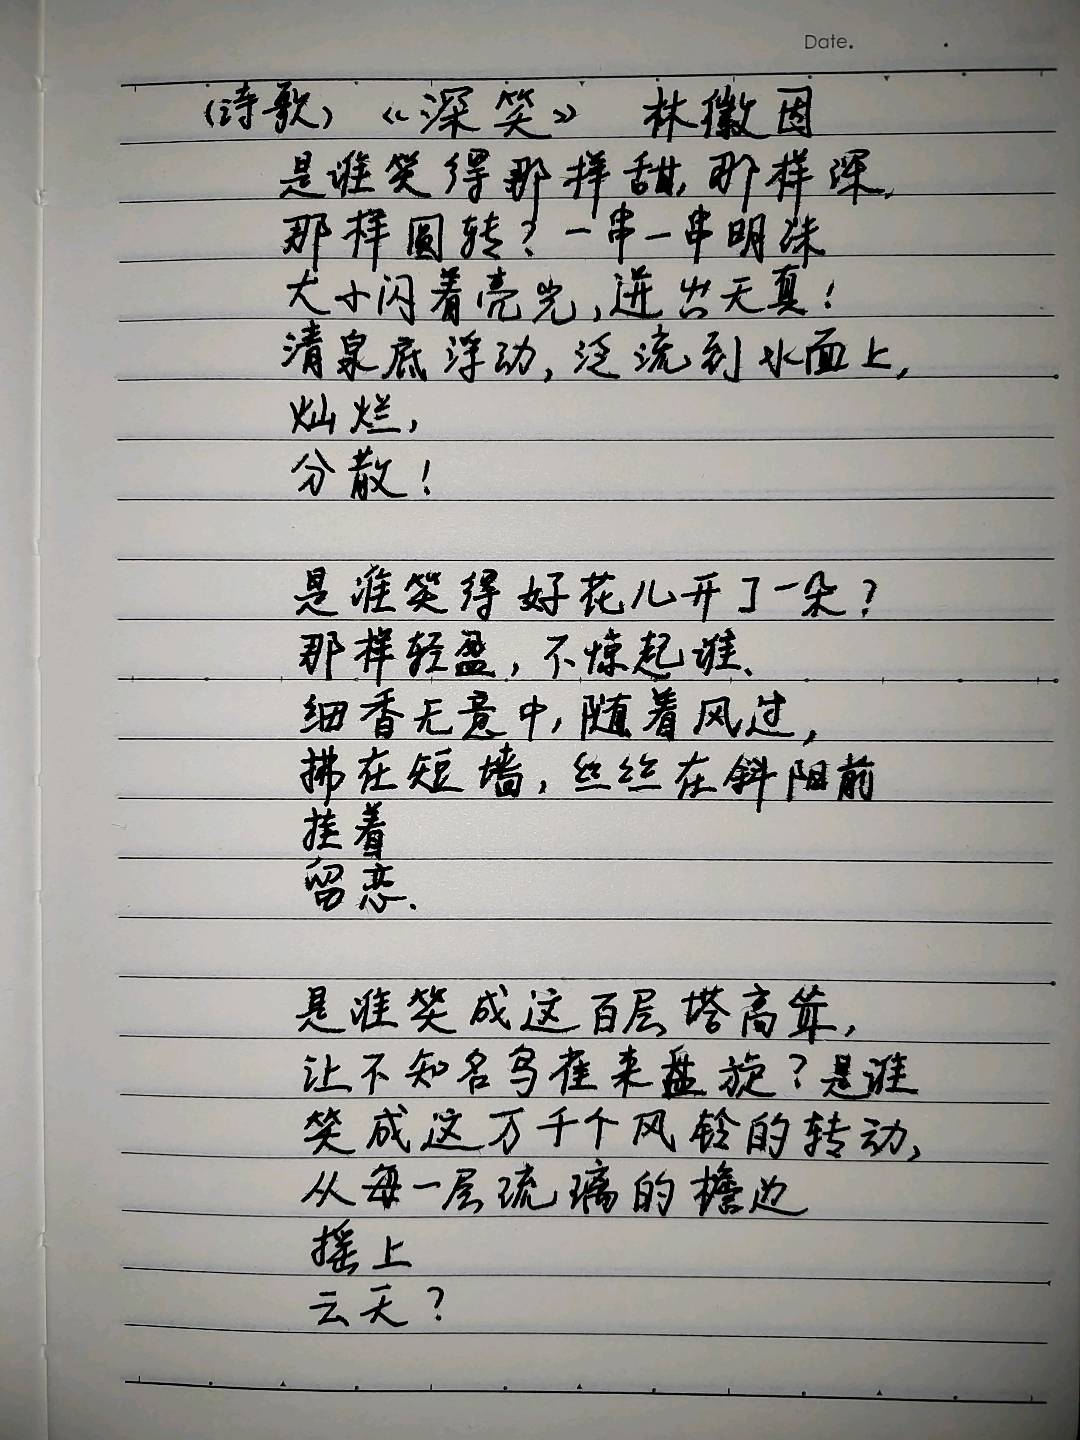 Date.
(诗歌) 《深笑》 林徽因
是谁笑得那样甜,那样深,
那样圆转?一串一串明珠
大小闪着亮光,迸出天真!
清泉底浮动,泛流到水面上,
灿烂,
分散!
是谁笑得好花儿开了一朵?
那样轻盈,不惊起谁、
细香无意中,随着风过,
拂在短墙,丝丝在斜阳前
挂着
留恋.
是谁笑成这百层塔高耸,
让不知名鸟雀来盘旋?是谁
笑成这万千个风铃的转动,
从每一层琉璃的檐边
摇上
云天?